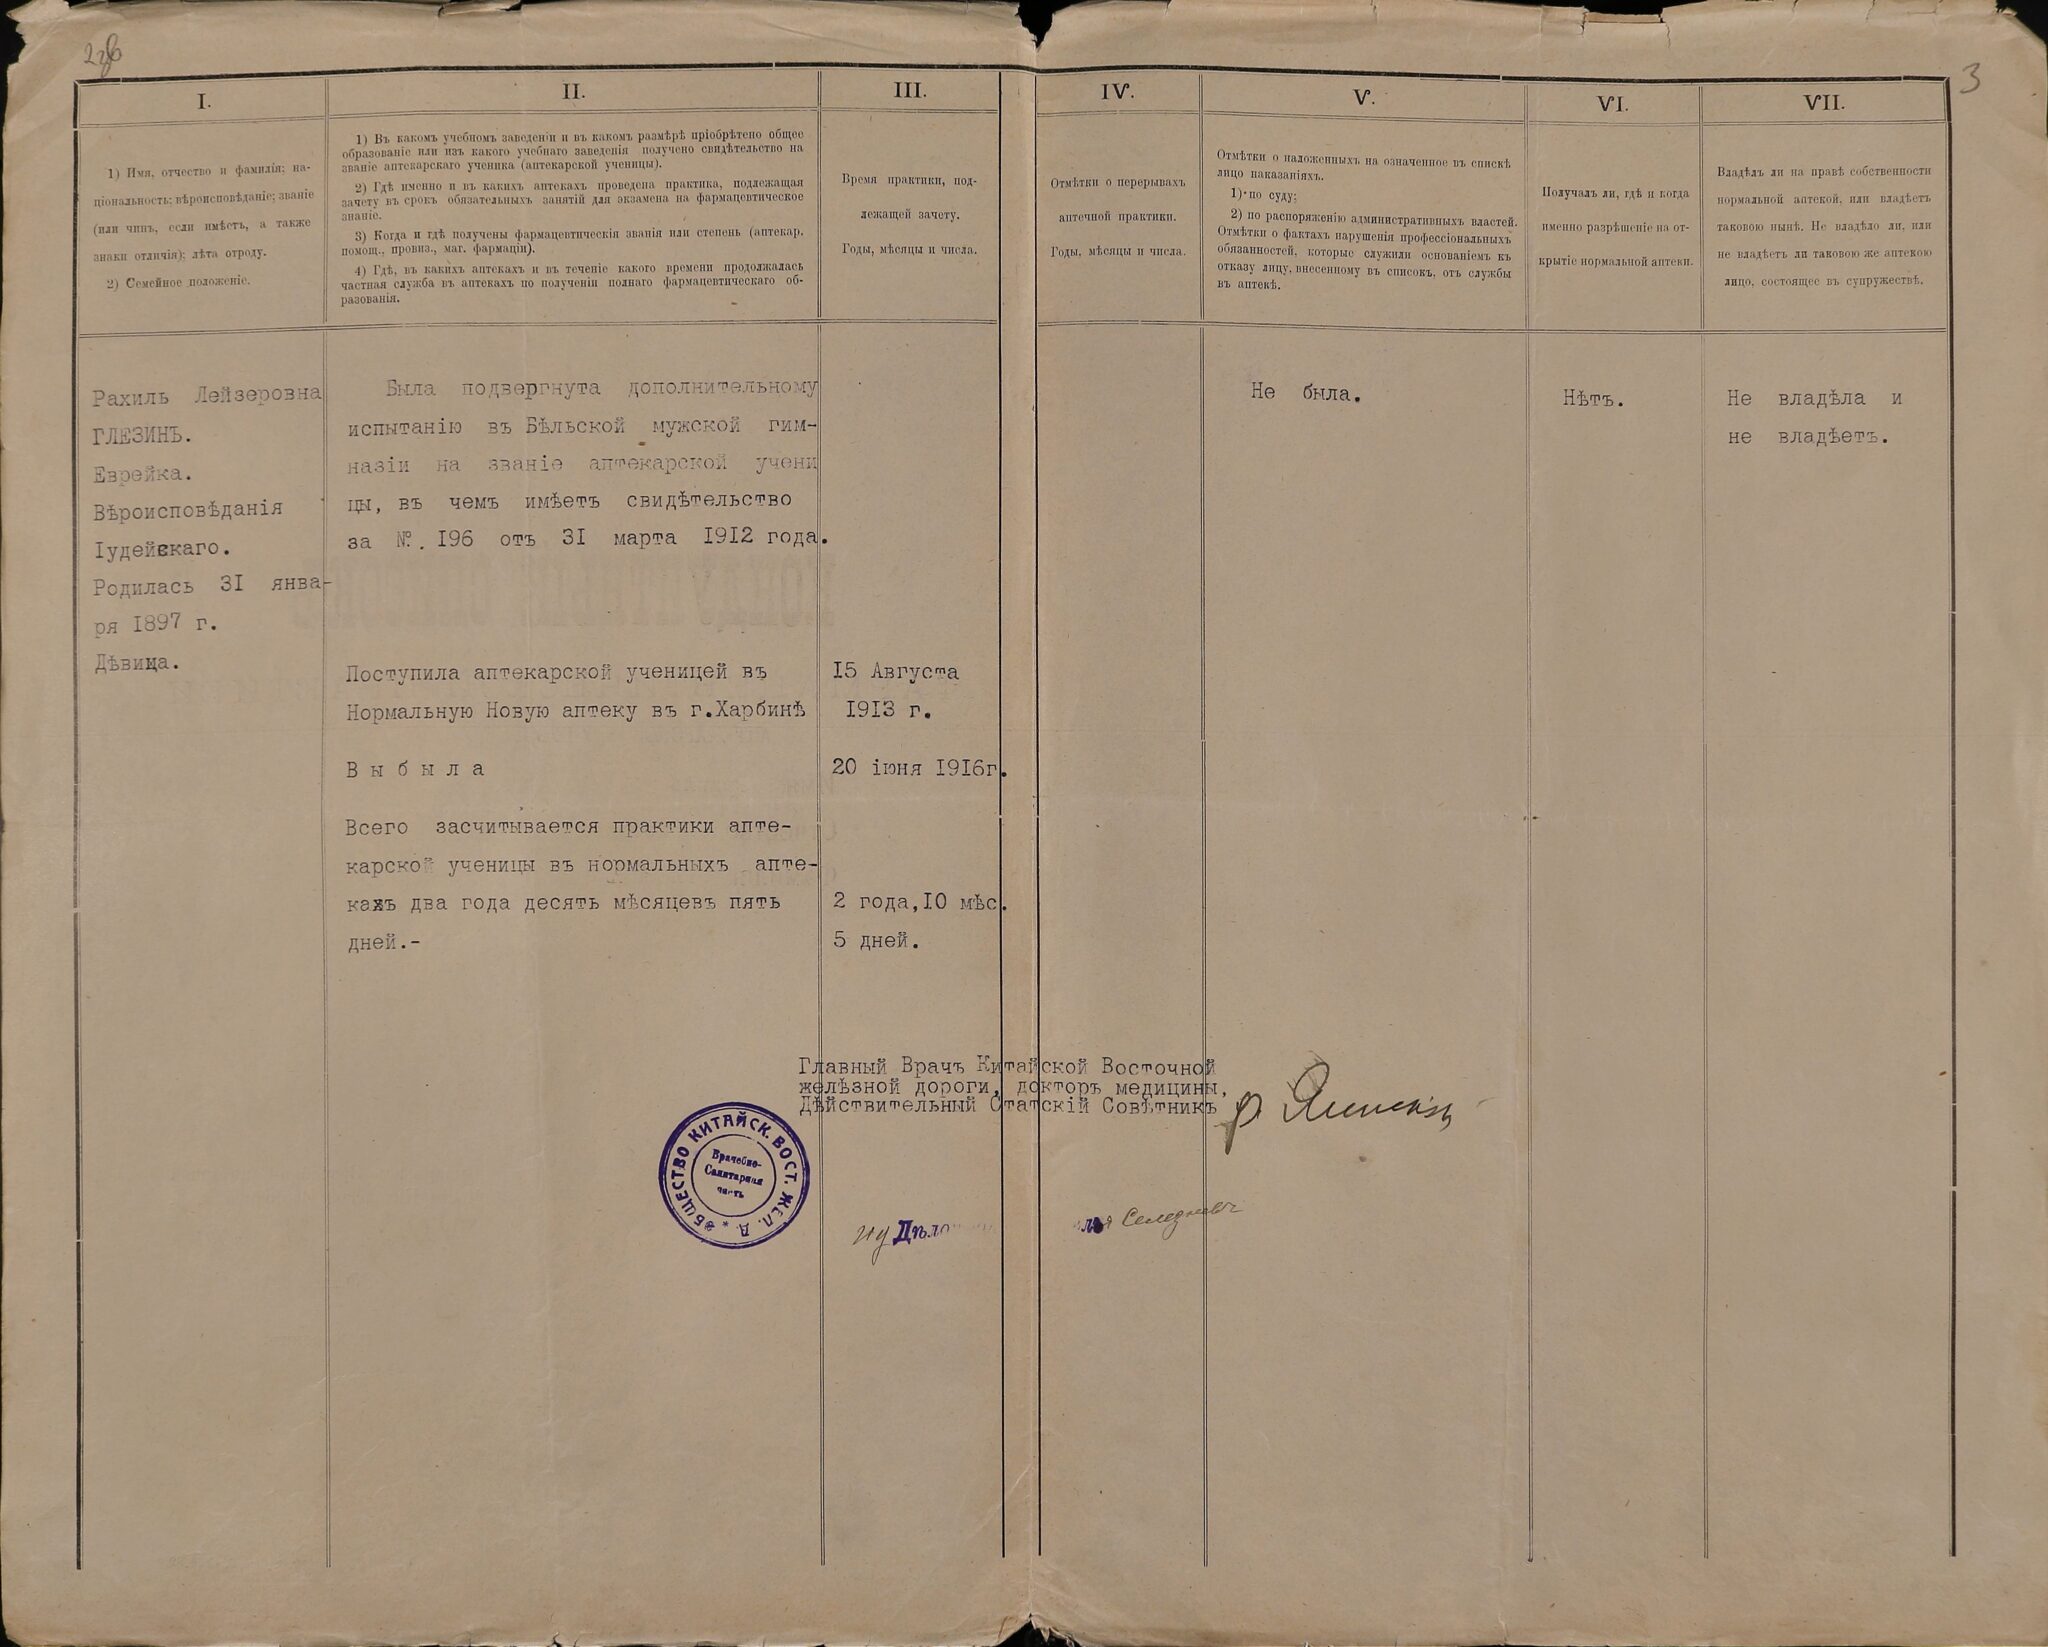 3
I.
II.
III.
IV.
V.
VI.
VII.
1) Имя, отчество и фамилія; на-
ціональность; вѣроисповѣданіе; званіе
(или чинъ, если имѣетъ, а также
знаки отличія); лѣта отроду.
2) Семейное положеніе.
1) Въ какомъ учебномъ заведеніи и въ какомъ размѣрѣ пріобрѣтено общее
образованіе или изъ какого учебнаго заведенія получено свидѣтельство на
званіе аптекарскаго ученика (аптекарской ученицы).
2) Гдѣ именно и въ какихъ аптекахъ проведена практика, подлежащая
зачету въ срокъ обязательныхъ занятій для экзамена на фармацевтическое
званіе.
3) Когда и гдѣ получены фармацевтическія званія или степень (аптекар.
помощ., провиз., маг. фармаціи).
4) Гдѣ, въ какихъ аптекахъ и въ теченіе какого времени продолжалась
частная служба въ аптекахъ по полученіи полнаго фармацевтическаго об-
разованія.
Время практики, под-
лежащей зачету.
Годы, мѣсяцы и числа.
Отмѣтки о перерывахъ
аптечной практики.
Годы, мѣсяцы и числа.
Отмѣтки о наложенныхъ на означенное въ спискѣ
лицо наказаніяхъ.
1) по суду;
2) по распоряженію административныхъ властей.
Отмѣтки о фактахъ нарушенія профессіональныхъ
обязанностей, которые служили основаніемъ къ
отказу лицу, внесенному въ списокъ, отъ службы
въ аптекѣ.
Получалъ ли, гдѣ и когда
именно разрѣшеніе на от-
крытіе нормальной аптеки.
Владѣлъ ли на правѣ собственности
нормальной аптекой, или владѣетъ
таковою нынѣ. Не владѣло ли, или
не владѣетъ ли таковою же аптекою
лицо, состоящее въ супружествѣ.
Рахиль Лейзеровна
ГЛЕЗИНЪ.
Еврейка.
Вѣроисповѣданія
Іудейскаго.
Родилась 31 янва-
ря 1897 г.
Дѣвица.
Была подвергнута дополнительному
испытанію въ Бѣльской мужской гим-
назіи на званіе аптекарской учени
цы, въ чемъ имѣетъ свидѣтельство
за №. 196 отъ 31 марта 1912 года.
Поступила аптекарской ученицей въ
Нормальную Новую аптеку въ г.Харбинѣ
15 Августа
1913 г.
Выбыла
20 іюня 1916г.
Всего засчитывается практики апте-
карской ученицы въ нормальныхъ апте-
кахъ два года десять мѣсяцевъ пять
дней.-
2 года,10 мѣс.
5 дней.
Не была.
Нѣтъ.
Не владѣла и
не владѣетъ.
Главный Врачъ Китайской Восточной
желѣзной дороги, докторъ медицины,
Дѣйствительный Статскій Совѣтникъ
ОБЩЕСТВО КИТАЙСК. ВОСТ. ЖЕЛ. Д.
Врачебно-
Санитарная
часть